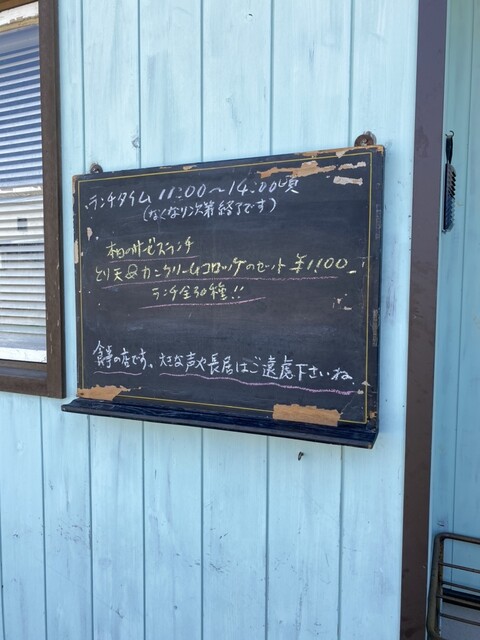 ランチタイム 11:00〜14:00頃
(なくなり次第終了です)
本日のサービスランチ
とり天&カニクリームコロッケのセット ¥1100
ランチ全30種!!
食事の店です、大きな声や長居はご遠慮下さいね